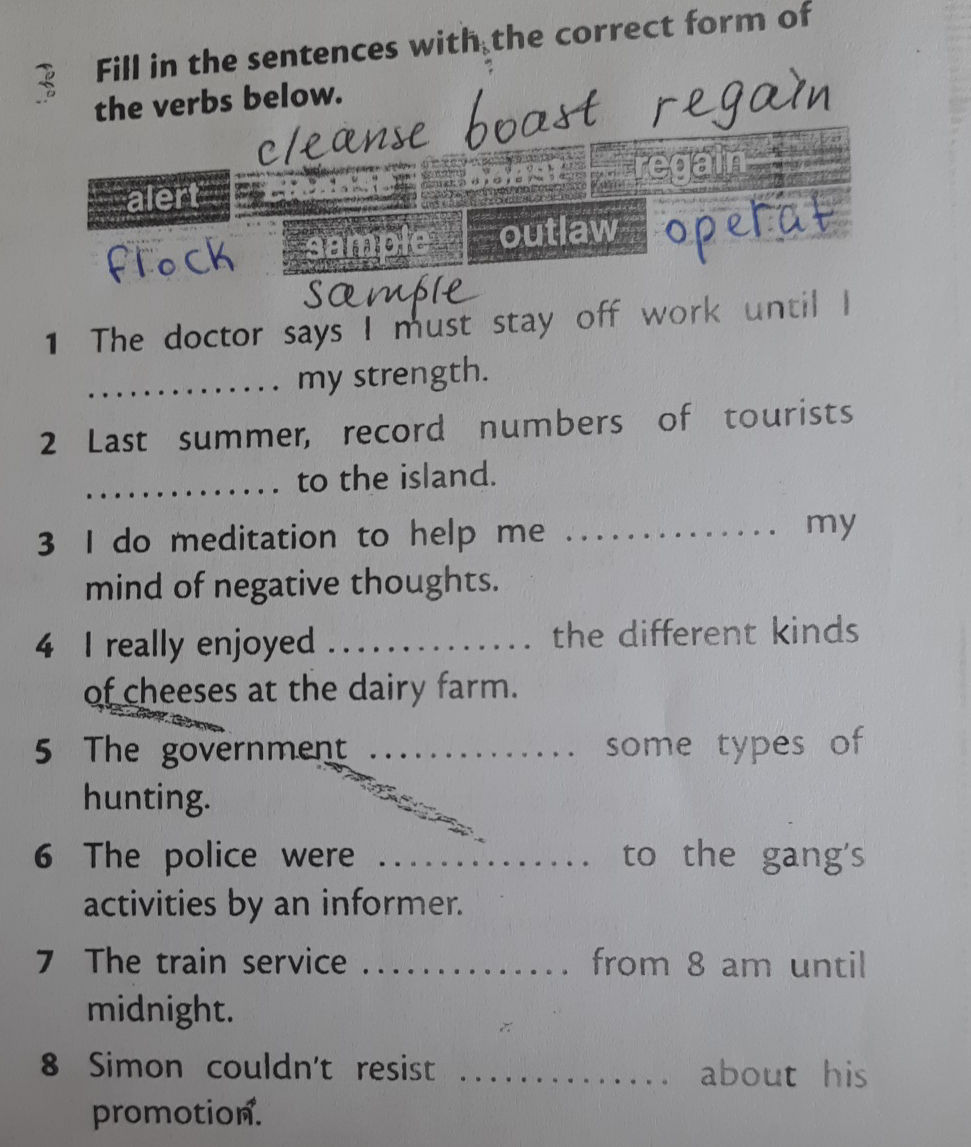 Fill in the sentences with the correct form of
the verbs below.
cleanse boast regain
alert cleanse boast regain
flock sample outlaw operat
sample
1 The doctor says I must stay off work until I
.............. my strength.
2 Last summer, record numbers of tourists
.............. to the island.
3 I do meditation to help me .............. my
mind of negative thoughts.
4 I really enjoyed .............. the different kinds
of cheeses at the dairy farm.
5 The government .............. some types of
hunting.
6 The police were .............. to the gang's
activities by an informer.
7 The train service .............. from 8 am until
midnight.
8 Simon couldn't resist .............. about his
promotion.